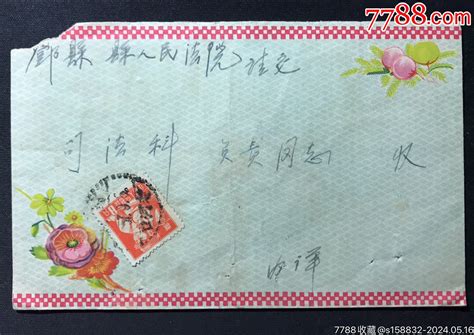 7788.com
鄮县 县人民法院 注交
司法科 负责同志 收
内详
7788收藏@s158832-2024.05.16